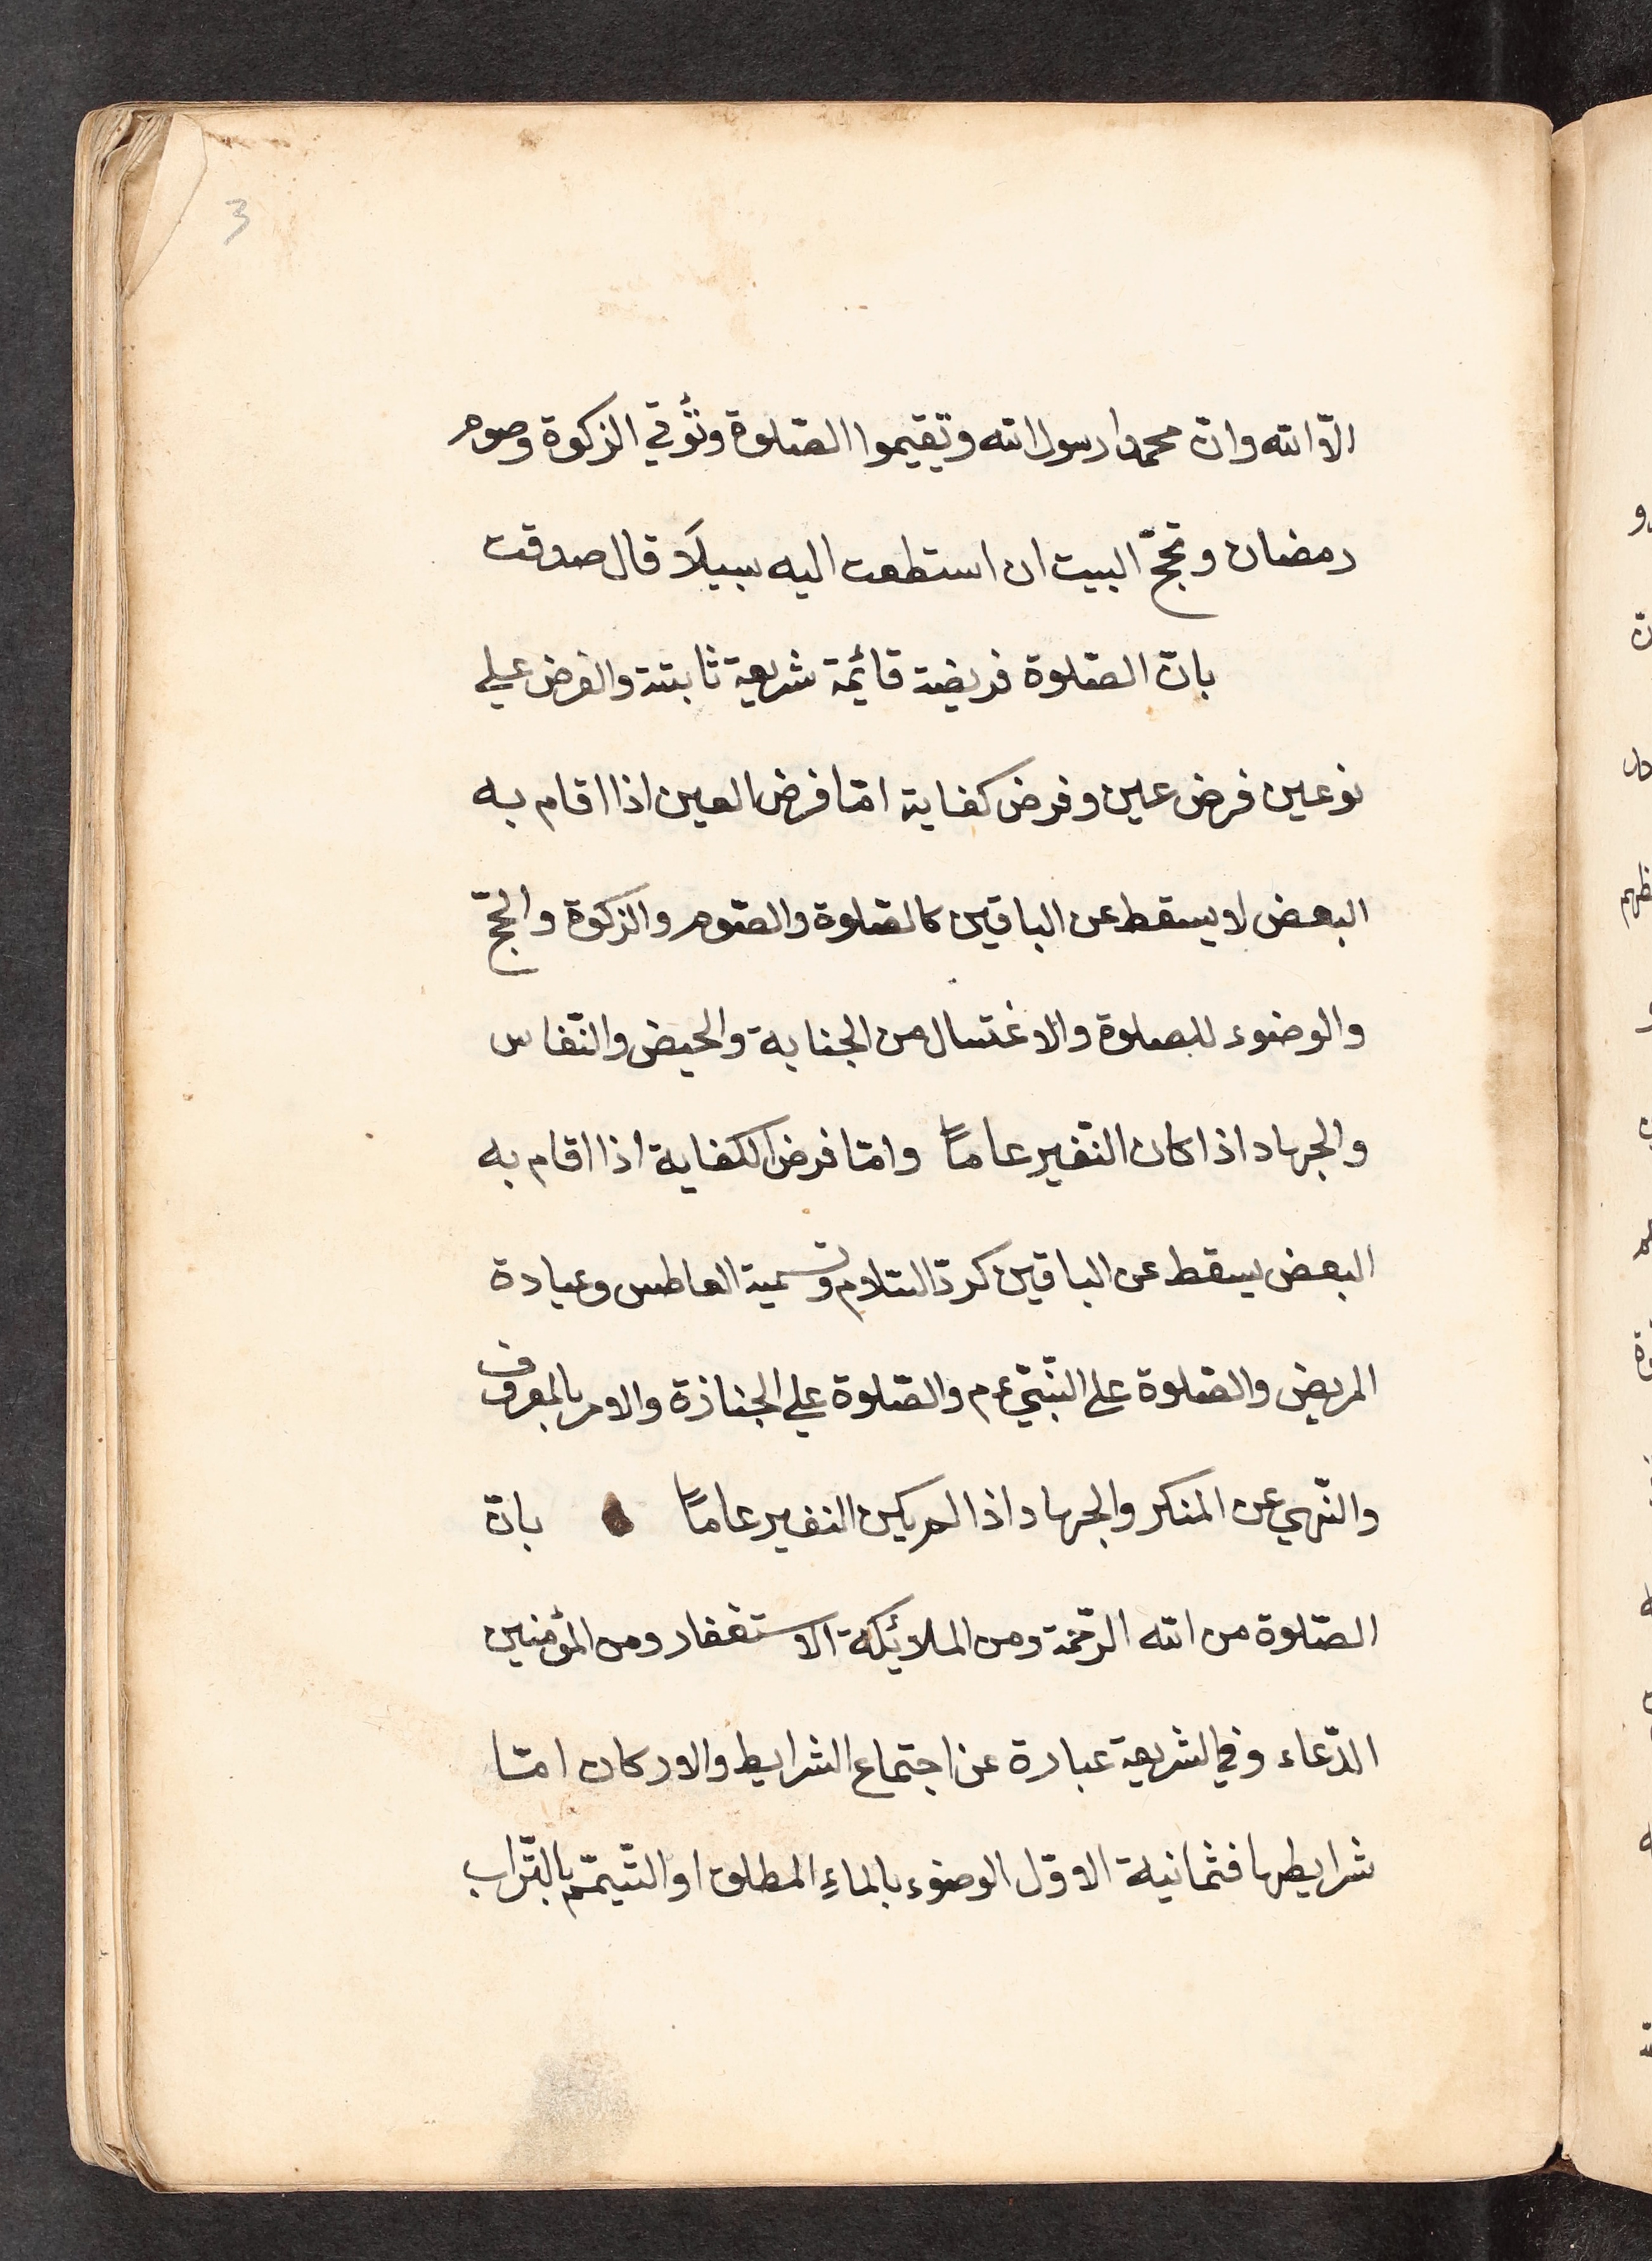 3
الّا الله وانّ محمدا رسول الله وتقيموا الصّلوة وتؤتي الزكوة وصوم
رمضان وتحجّ البيت ان استطعت اليه سبيلا قال صدقت
بانّ الصّلوة فريضة قائمة شريعة ثابتة والفرض علي
نوعين فرض عين وفرض كفاية امّا فرض العين اذا اقام به
البعض لا يسقط عن الباقين كالصّلوة والصّوم والزكوة والحجّ
والوضوء للصلوة والاغتسال من الجنابة والحيض والنّفاس
والجهاد اذا كان النّفير عامّاً وامّا فرض الكفاية اذا اقام به
البعض يسقط عن الباقين كردّ السّلام وتسمية العاطس وعيادة
المريض والصّلوة على النّبيّ ءم والصّلوة علي الجنازة والامر بالمعروف
والنّهي عن المنكر والجهاد اذا لم يكن النفير عامّاً بانّ
الصّلوة من الله الرّحمة ومن الملائكة الاستغفار ومن المؤمنين
الدّعاء وفي الشريعة عبارة عن اجتماع الشرايط والاركان امّا
شرايطها فثمانية الاوّل الوضوء بالماءِ المطلق او التّيمّم بالتّراب